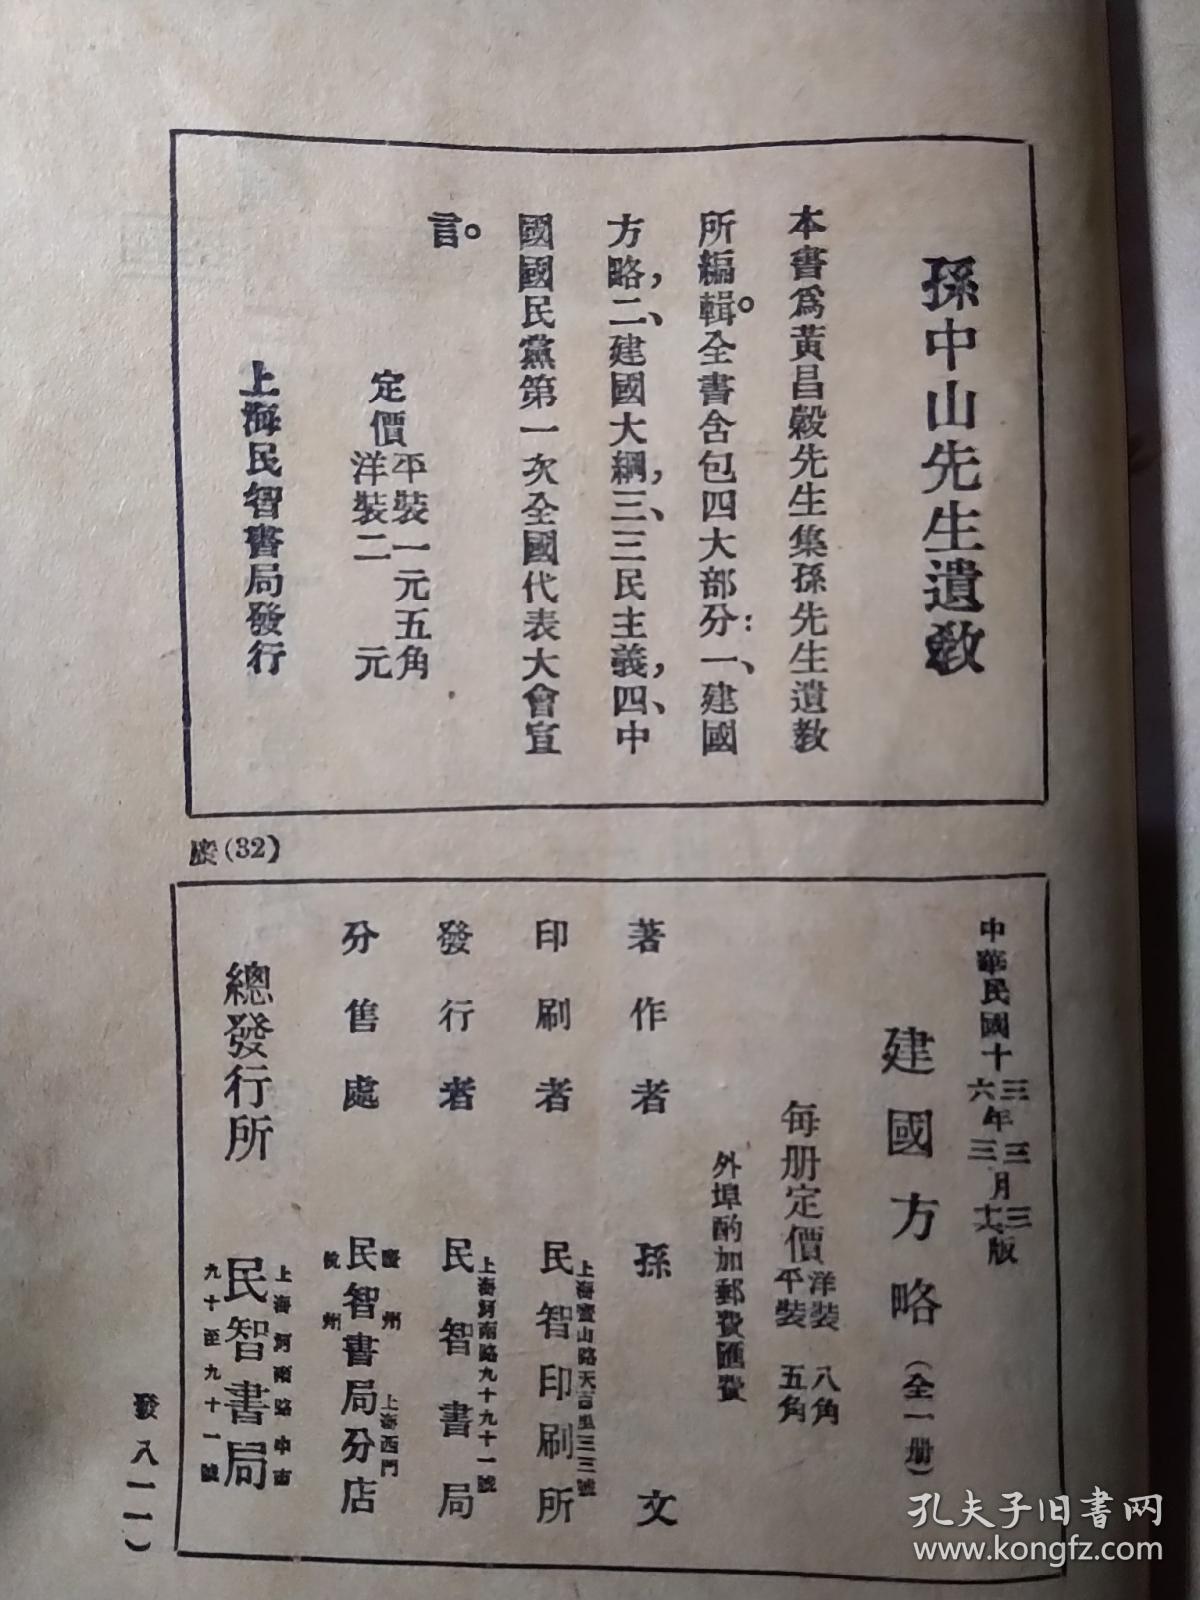 孫中山先生遺敎
本書爲黃昌穀先生集孫先生遺敎
所編輯。全書含包四大部分：一、建國
方略，二、建國大綱，三、三民主義，四、中
國國民黨第一次全國代表大會宣
言。
定價
平裝一元五角
洋裝二元
上海民智書局發行
(32)
中華民國十三年三月三版
六年三月
建國方略（全一册）
每册定價
洋裝八角
平裝五角
外埠酌加郵費匯費
著作者 孫文
印刷者 民智印刷所
上海寶山路天吉里三三號
發行者 民智書局
上海河南路九十九十一號
分售處 民智書局分店
上海西門
總發行所 民智書局
上海河南路中市
九十至九十一號
孔夫子旧书网
www.kongfz.com